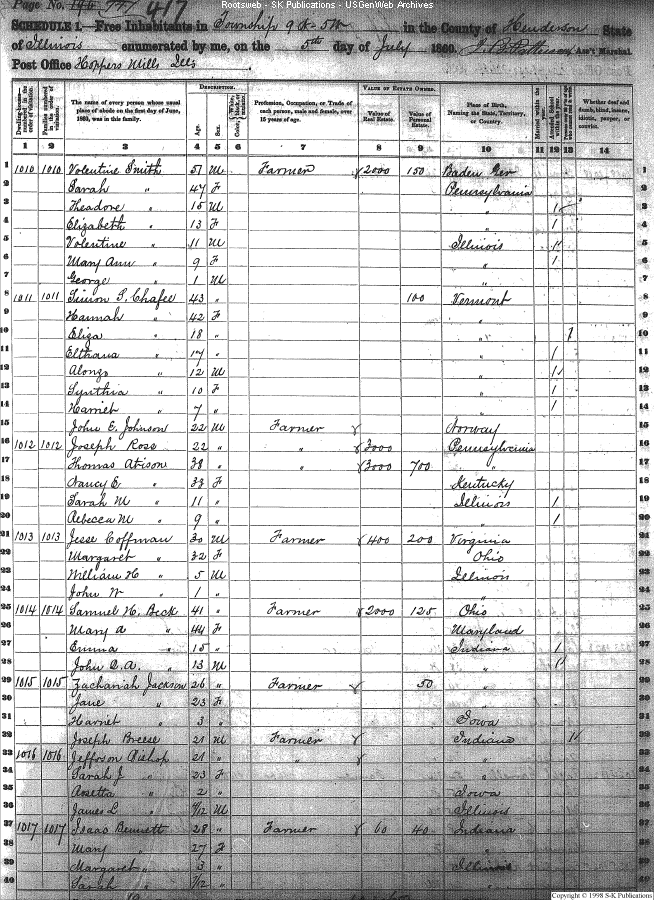 Rootsweb - SK Publications - USGenWeb Archives
Page No. 417
SCHEDULE 1.—Free Inhabitants in Township 9 N - 5 W in the County of Henderson State
of Illinois enumerated by me, on the 5th day of July 1860. Ass't Marshal
Post Office Hoppers Mills Ills
Dwelling-houses numbered in the order of visitation.
Families numbered in the order of visitation.
The name of every person whose usual place of abode on the first day of June, 1860, was in this family.
DESCRIPTION.
Age.
Sex.
Color, White, black, or mulatto.
Profession, Occupation, or Trade of each person, male and female, over 15 years of age.
VALUE OF ESTATE OWNED.
Value of Real Estate.
Value of Personal Estate.
Place of Birth, Naming the State, Territory, or Country.
Married within the year.
Attended School within the year.
Whether deaf and dumb, blind, insane, idiotic, pauper, or convict.
1 2 3 4 5 6 7 8 9 10 11 12 13 14
1 1010 1010 Volentine Smith 51 M Farmer 2000 150 Baden Ger 1
2 Sarah " 47 F Pennsylvania 2
3 Theadore " 15 M " 1 3
4 Elizabeth " 13 F " 1 4
5 Volentine " 11 M Illinois 1 5
6 Mary Ann " 9 F " 1 6
7 George " 1 M " 7
8 1011 1011 Simon S. Chafee 43 " 100 Vermont 8
9 Hannah " 42 F " 9
10 Eliza " 18 " " 1 10
11 Elthana " 17 " " 1 11
12 Alonzo " 12 M " 1 12
13 Synthia " 10 F " 1 13
14 Harriet " 7 " " 1 14
15 John E. Johnson 22 M Farmer Norway 15
16 1012 1012 Joseph Ross 22 " " 3000 Pennsylvania 16
17 Thomas Atison 38 " " 3000 700 " 17
18 Nancy E " 33 F Kentucky 18
19 Sarah M " 11 " Illinois 1 19
20 Rebecca M " 9 " " 1 20
21 1013 1013 Jesse Coffman 30 M Farmer 400 200 Virginia 21
22 Margaret " 32 F Ohio 22
23 William H " 5 M Illinois 23
24 John W " 1 " " 24
25 1014 1014 Samuel N. Beck 41 " Farmer 2000 125 Ohio 25
26 Mary A " 44 F Maryland 26
27 Emma " 15 " Indiana 1 27
28 John C. A. " 13 M " 1 28
29 1015 1015 Zachariah Jackson 26 " Farmer 50 " 29
30 Jane " 23 F " 30
31 Harriet " 3 " Iowa 31
32 Joseph Breese 21 M Farmer Indiana 1 32
33 1016 1016 Jefforson Bishop 21 " " " 33
34 Sarah J " 23 F " 34
35 Arsetta " 2 " Iowa 35
36 James L " /12 M Illinois 36
37 1017 1017 Isaac Bennett 28 " Farmer 60 40 Indiana 37
38 Mary " 27 F " 38
39 Margaret " 3 " Illinois 39
40 Sarah " /12 " " 40
Copyright © 1998 S-K Publications